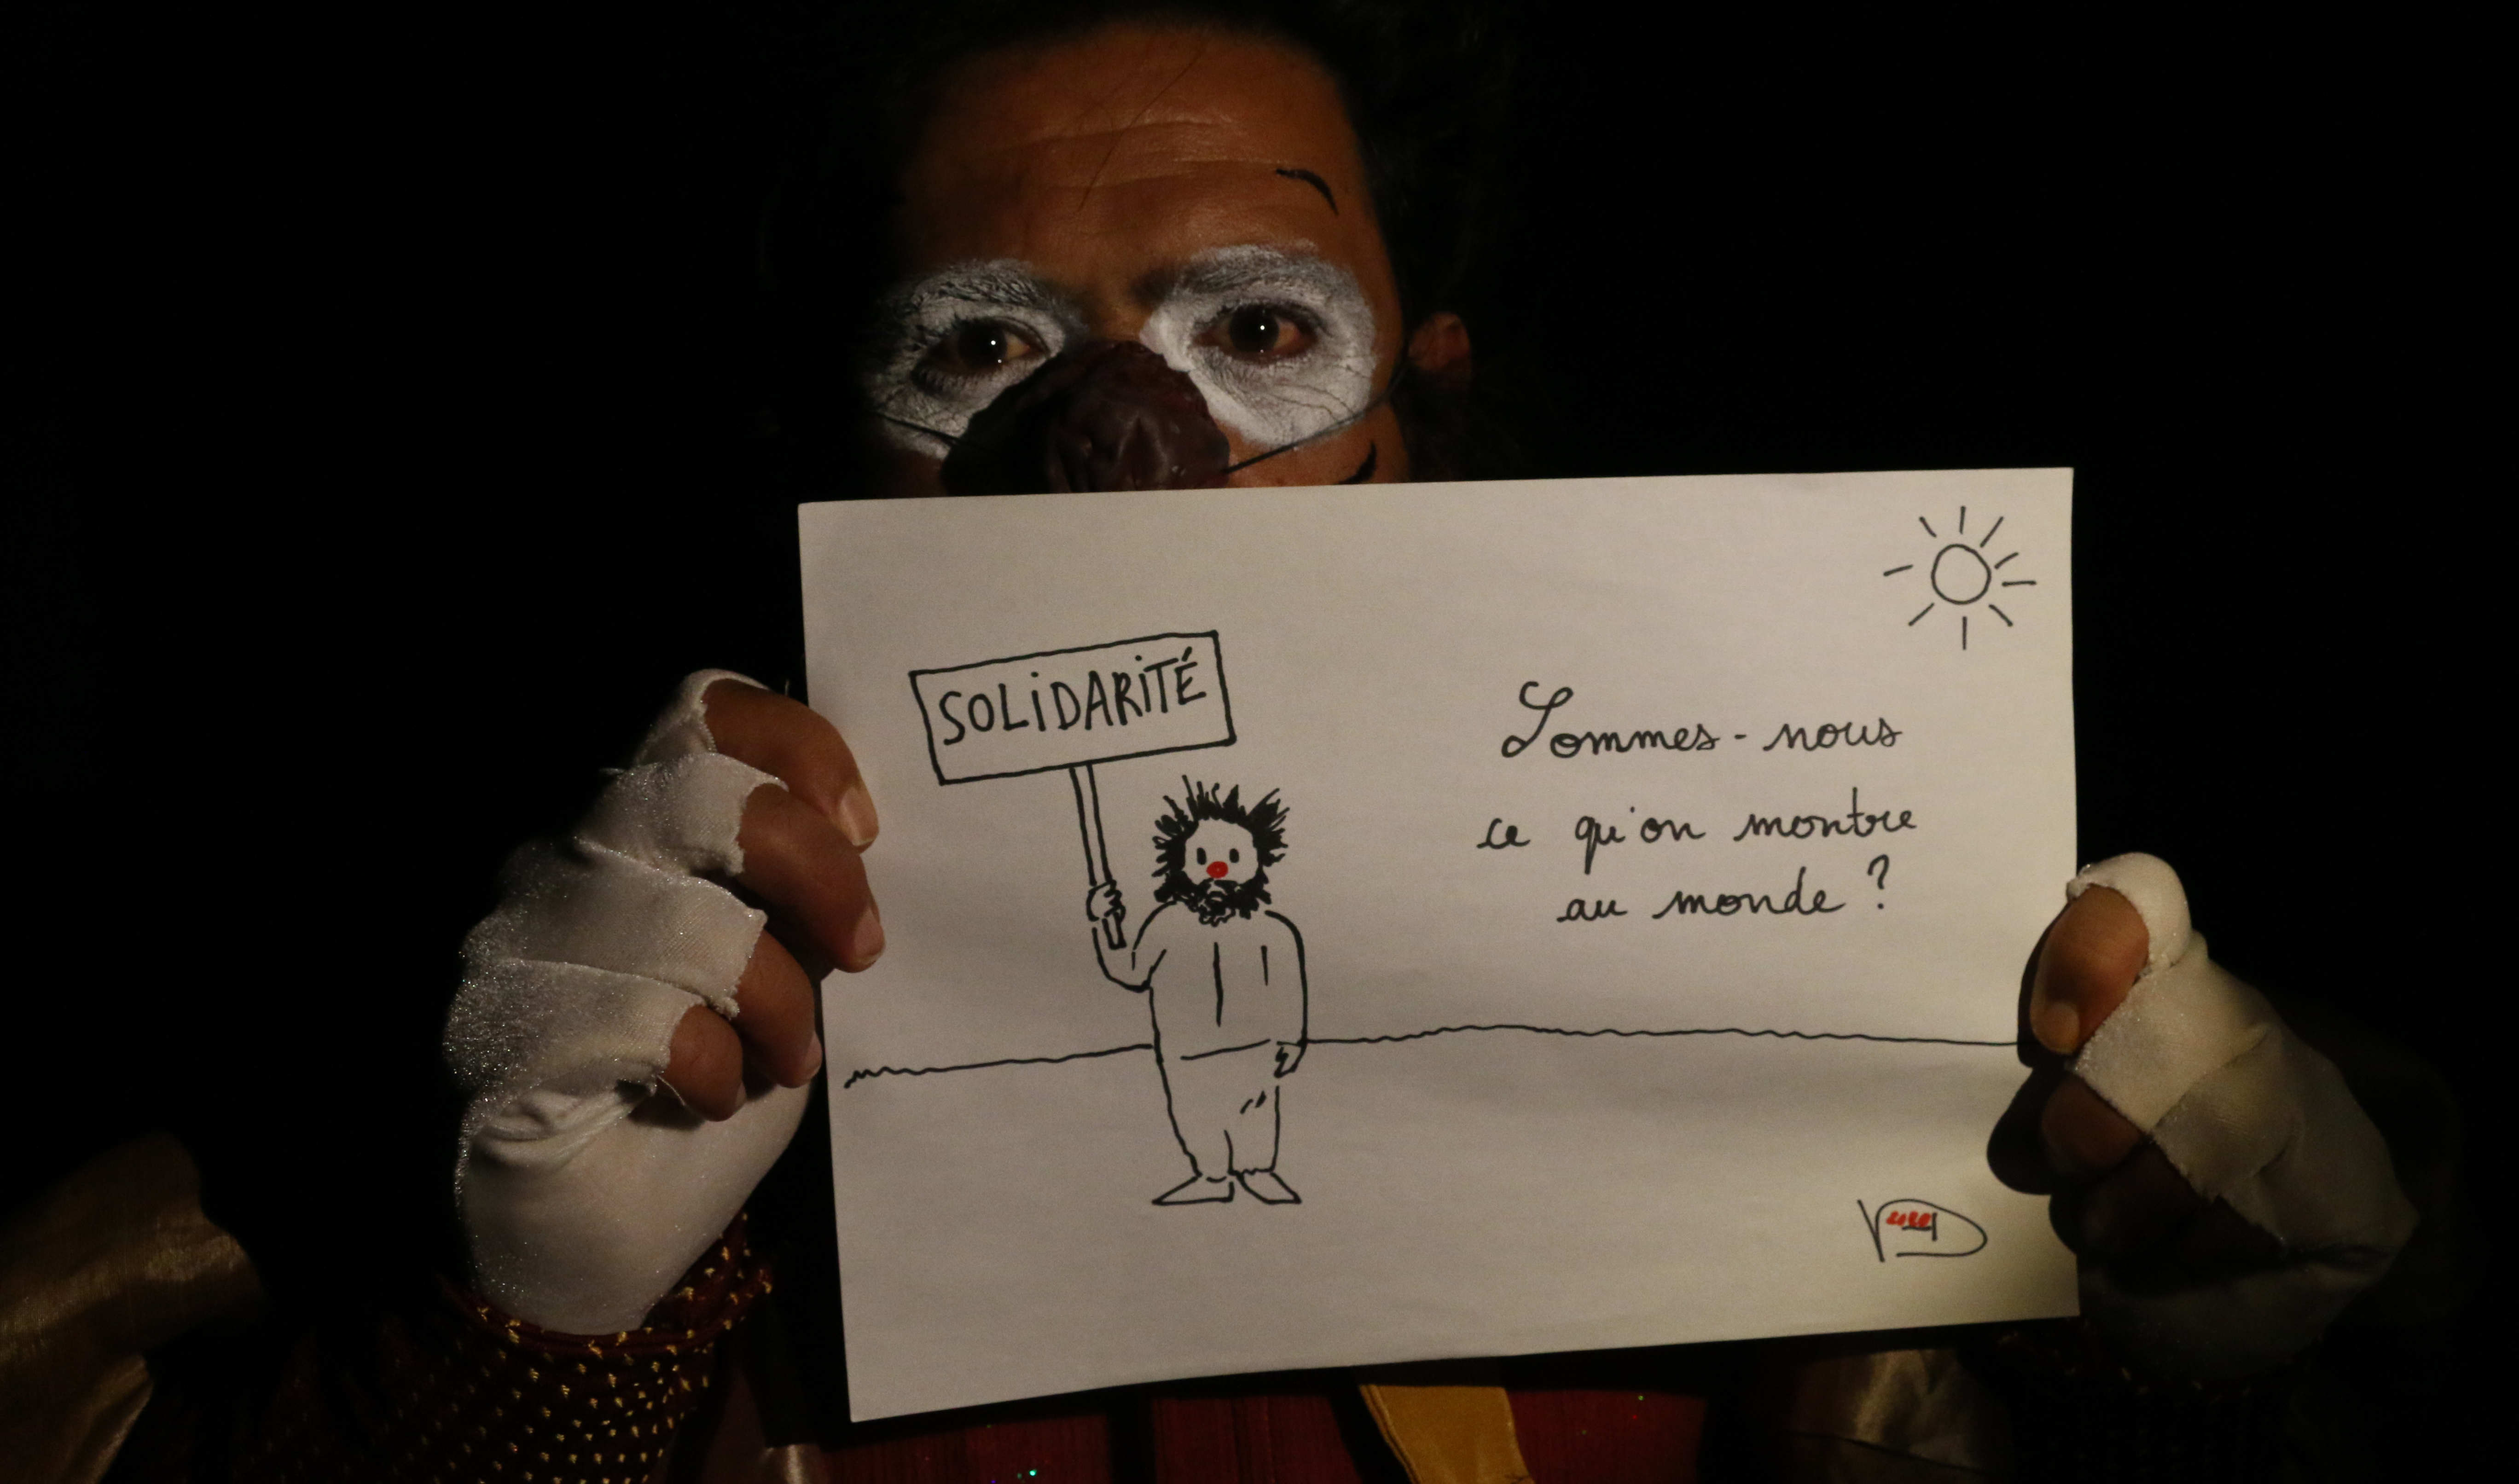 SOLiDARiTÉ
Sommes-nous
ce qu'on montre
au monde ?